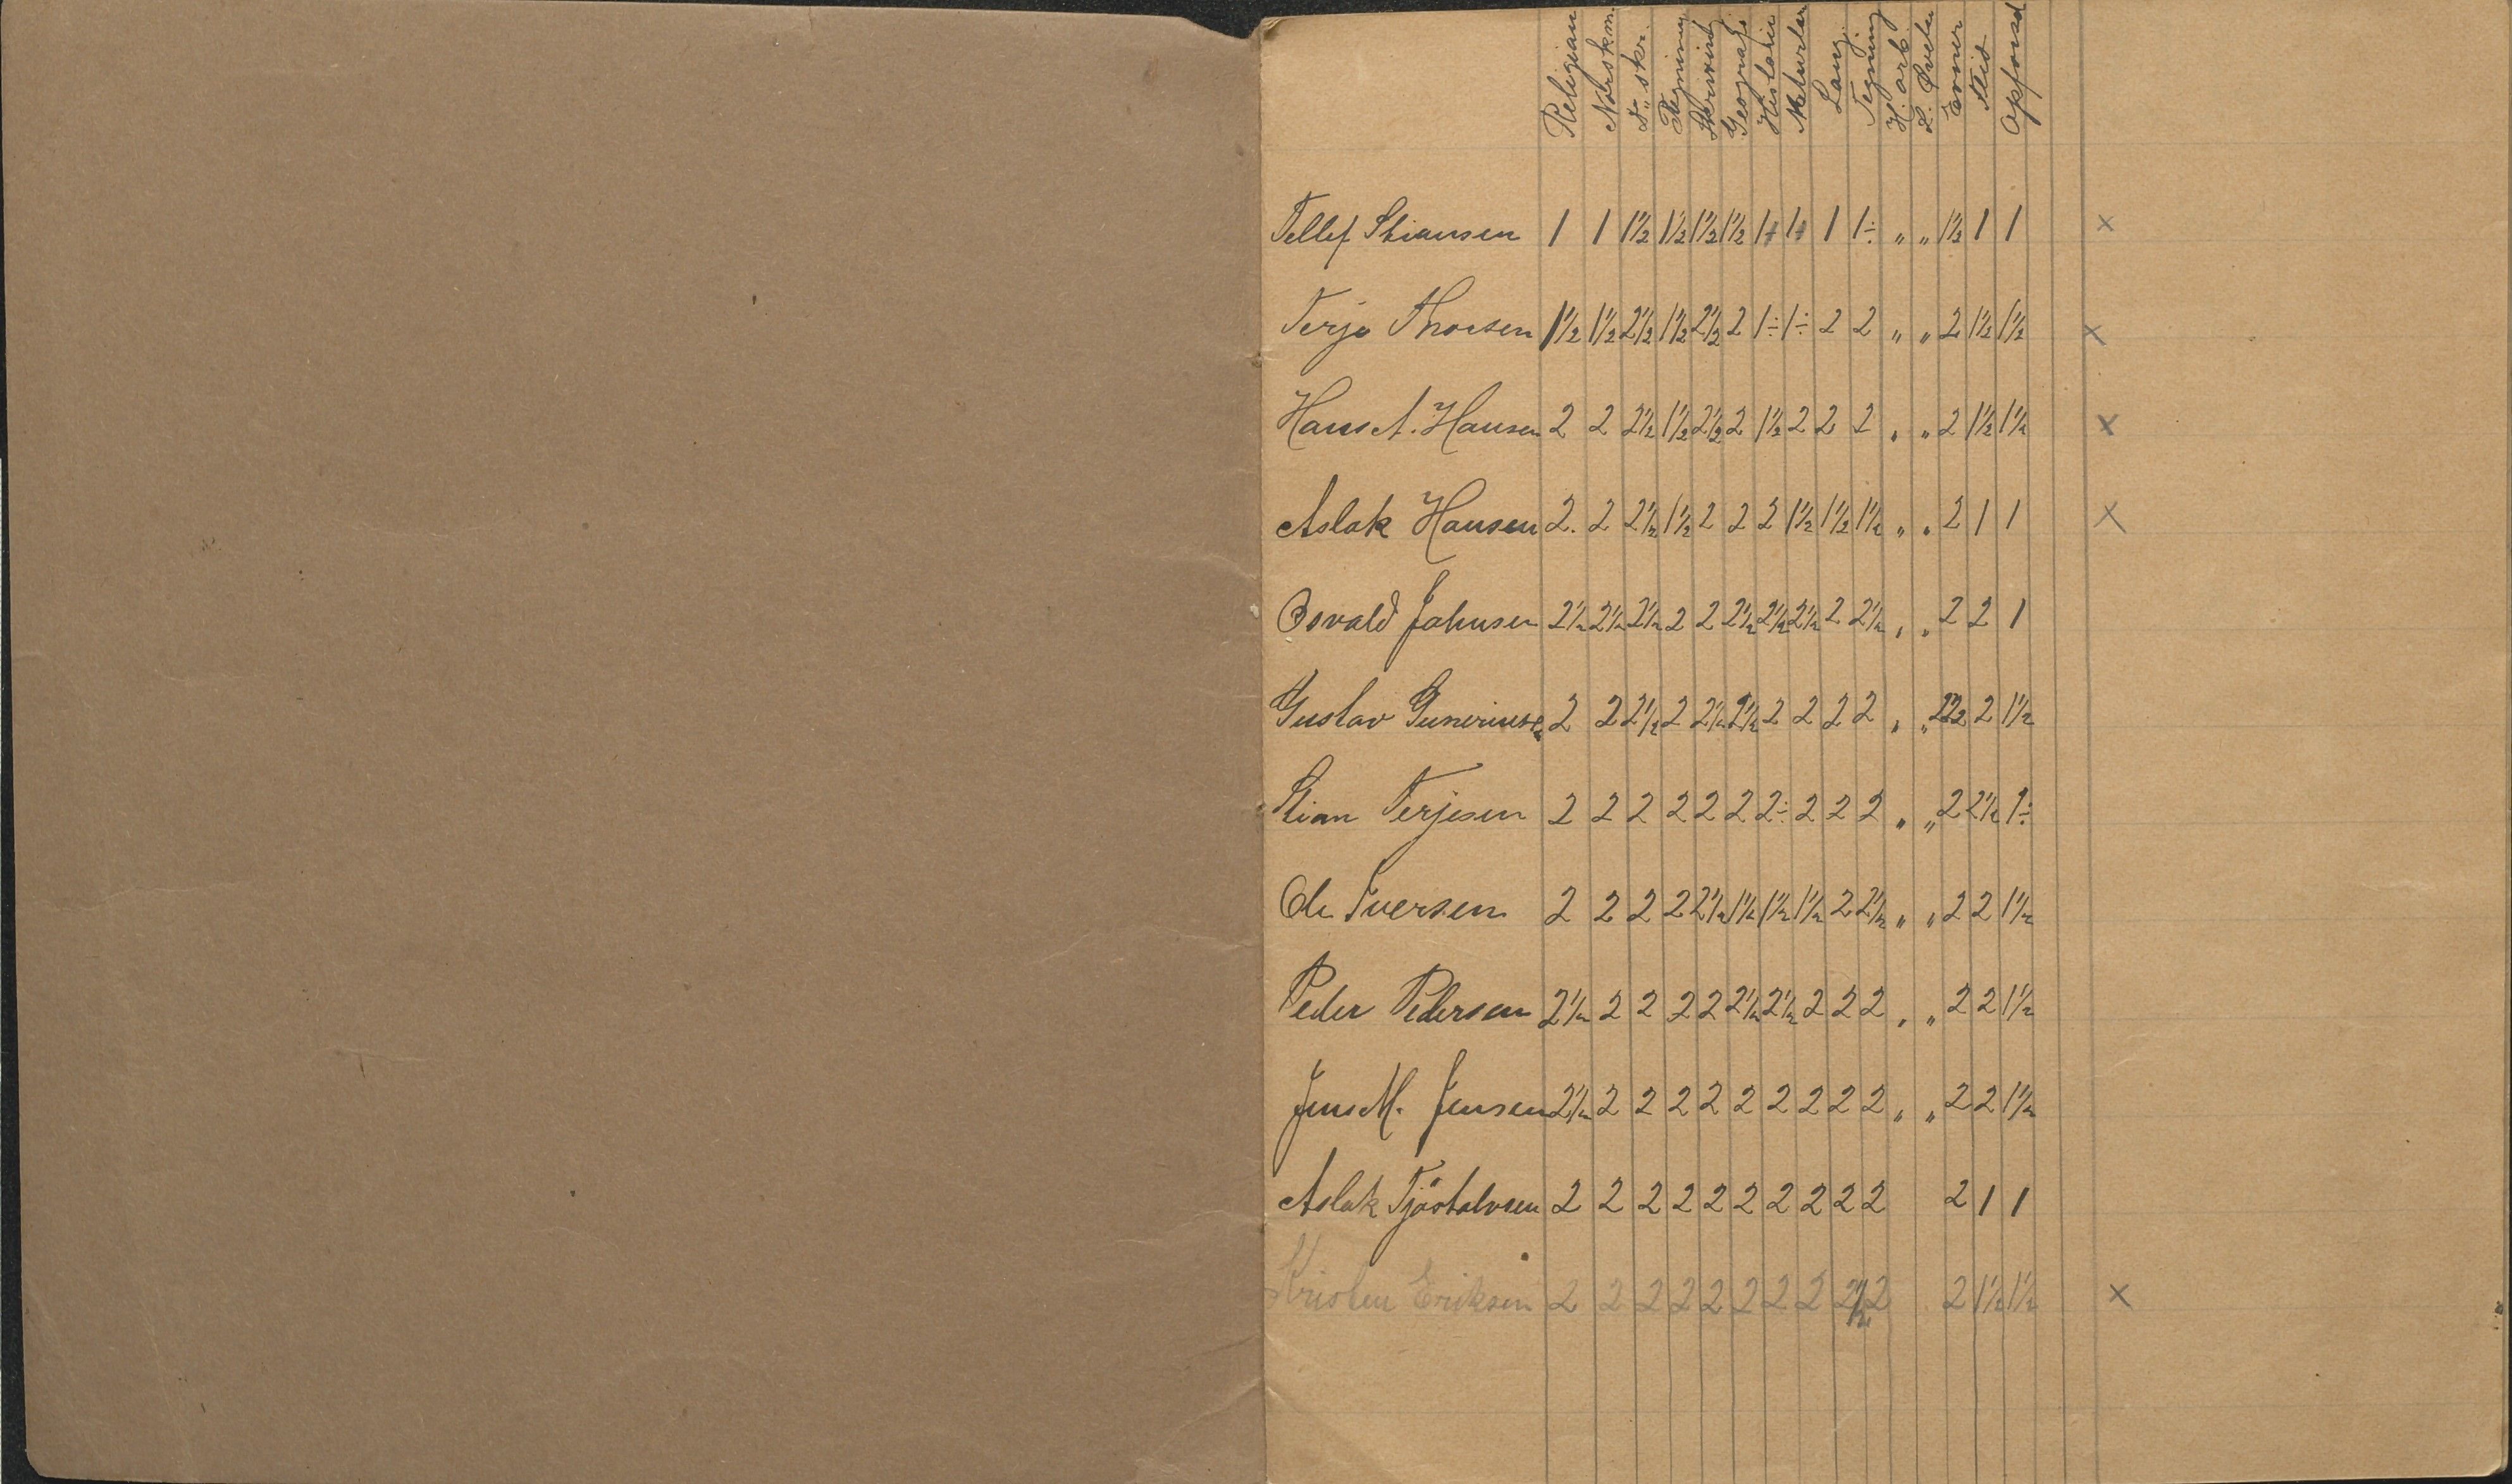 Religion Norsk m. D" skr. Regning Skrivning Geografi Historie Naturlær Sang Tegning H. arb. L. Øvelse Evner Flid Opførsel
Tellef Stiansen 1 1 1½ 1½ 1½ 1½ 1+ 1+ 1 1÷ " " 1½ 1 1 x
Terje Thorsen 1½ 1½ 2½ 1½ 2½ 2 1÷ 1÷ 2 2 " " 2 1½ 1½ x
Hans A. Hansen 2 2 2½ 1½ 2½ 2 1½ 2 2 2 " " 2 1½ 1½ x
Aslak Hansen 2. 2 2½ 1½ 2 2 2 1½ 1½ 1½ " " 2 1 1 x
Osvald Johnsen 2½ 2½ 2½ 2 2 2½ 2½ 2½ 2 2½ " " 2 2 1
Gustav Guneriusen 2 2 2½ 2 2½ 2½ 2 2 2 2 " " 2½ 2 1½
Stian Terjesen 2 2 2 2 2 2 2÷ 2 2 2 " " 2 2½ 1÷
Ole Iversen 2 2 2 2 2½ 1½ 1½ 1½ 2 2½ " " 2 2 1½
Peder Pedersen 2½ 2 2 2 2 2½ 2½ 2 2 2 " " 2 2 1½
Jens M. Jensen 2½ 2 2 2 2 2 2 2 2 2 " " 2 2 1½
Aslak Tjöstolvsen 2 2 2 2 2 2 2 2 2 2 2 1 1
Kristen Eriksen 2 2 2 2 2 2 2 2 2½ 2 2 1½ 1½ x